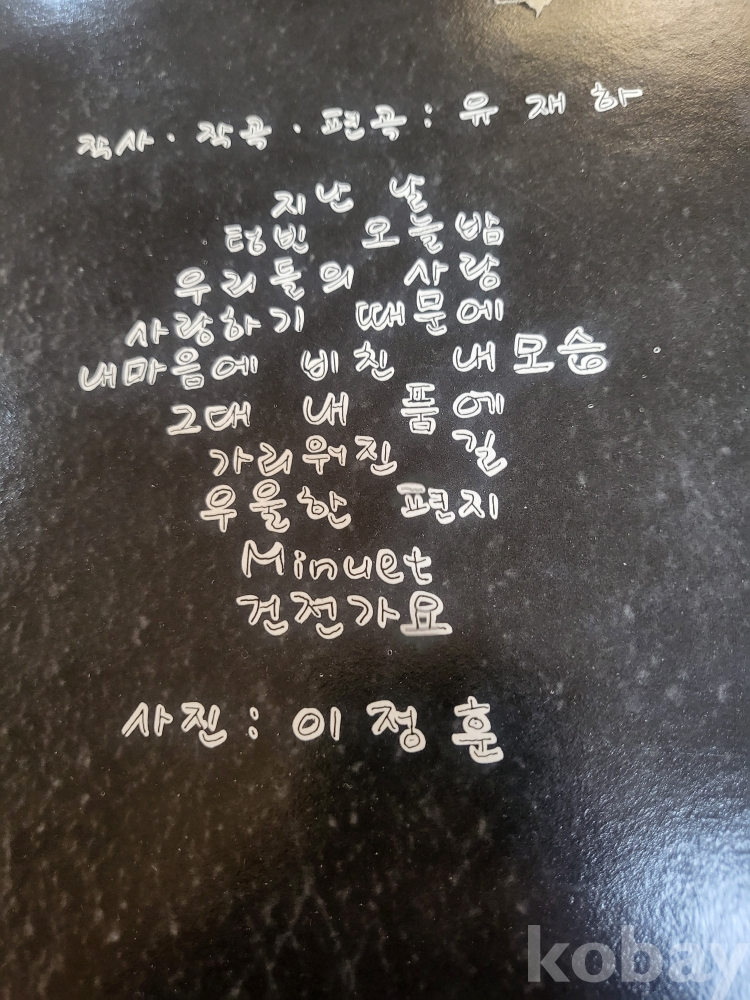 작사·작곡·편곡: 유재하
지난 날
텅빈 오늘밤
우리들의 사랑
사랑하기 때문에
내마음에 비친 내모습
그대 내 품에
가리워진 길
우울한 편지
Minuet
건전가요
사진: 이정훈
kobay